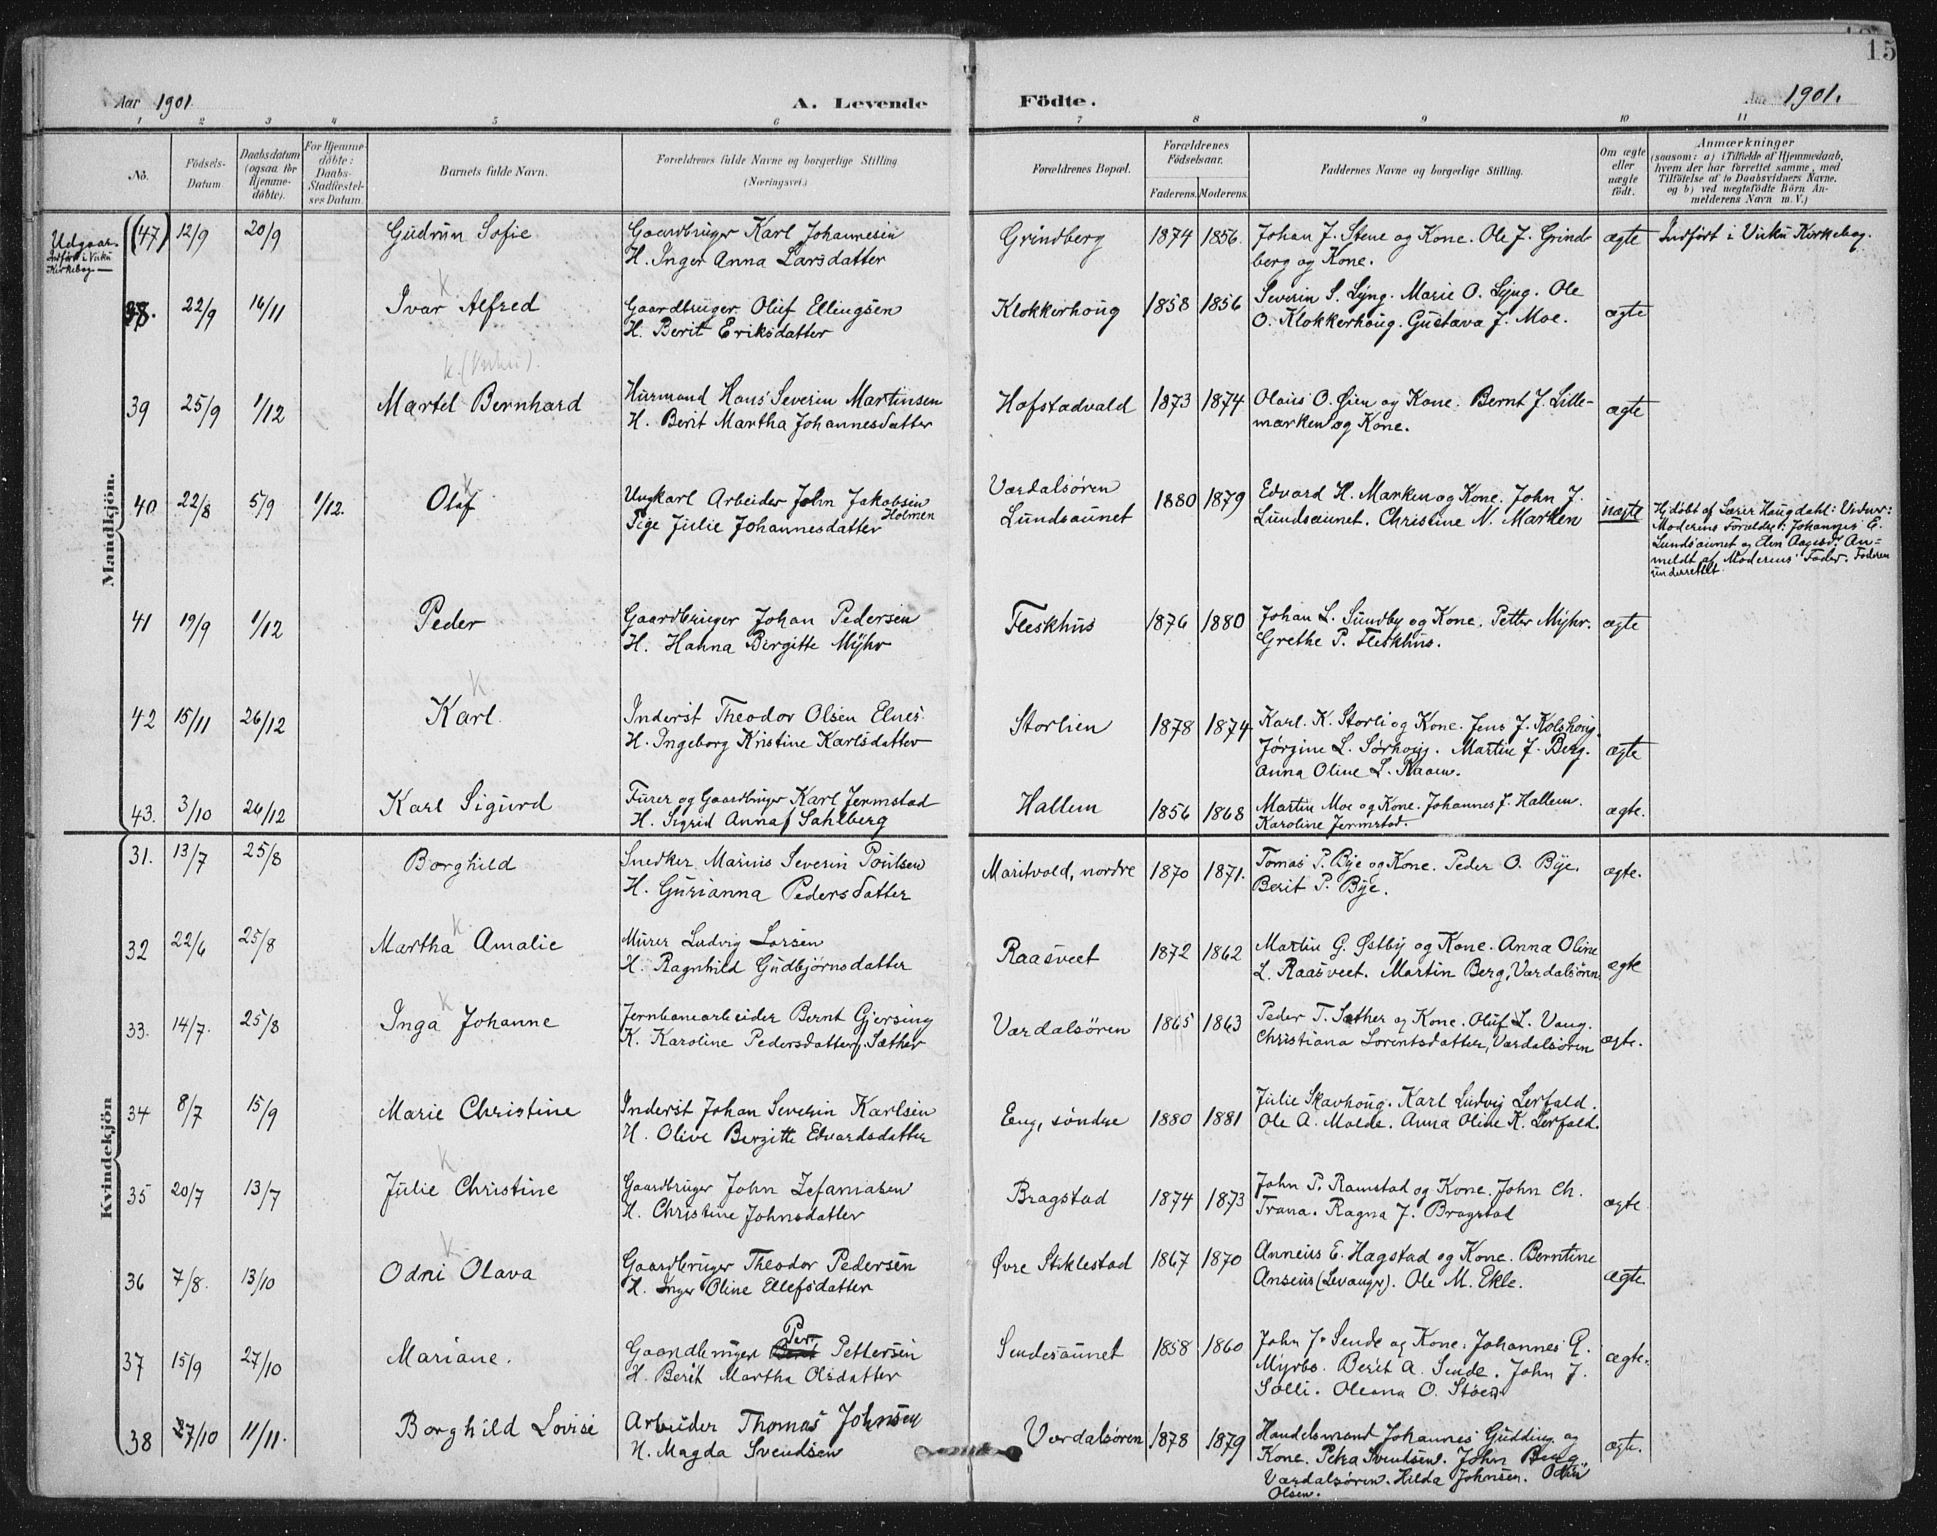 15
Aar 1901. A. Levende Födte. Aar 1901.
1 2 3 4 5 6 7 8 9 10 11
No. Födsels-Datum Daabsdatum (ogsaa for Hjemme-döbte). For Hjemme-döbte: Daabs-Stadfæstel-ses Datum. Barnets fulde Navn. Forældrenes fulde Navne og borgerlige Stilling (Næringsvei.) Forældrenes Bopæl. Forældrenes Födselsaar. Faderens. Moderens. Faddernes Navne og borgerlige Stilling. Om ægte eller uægte födt. Anmærkninger
(saasom: a) i Tilfælde af Hjemmedaab,
hvem der har forrettet samme, med
Tilföielse af to Daabsvidners Navne,
og b) ved uægtefödte Börn An-
melderens Navn m. V.)
Mandkjön.
Udgaar
Indført i Vuku
Kirkebog
(47) 12/9 20/9 Gudrun Sofie Gaardbruger Karl Johannesen Grindberg 1874 1856. Johan J. Stene og Kone. Ole J. Grind- ægte Indført i Vuku Kirkebog.
H. Inger Anna Larsdatter berg og Kone.
K
38. 22/9 16/11 Ivar Alfred Gaardbruger Oluf Ellingsen Klokkerhoug 1858 1856 Severin S. Lyng. Marie O. Lyng. Ole ægte
H. Berit Eriksdatter O. Klokkerhoug. Gustava J. Moe.
K. (Vuku).
39 25/9 1/12 Martel Bernhard Husmand Hans Severin Martinsen Hofstadvald 1873 1874 Olaus O. Øien og Kone. Bernt J. Lille- ægte
H. Berit Martha Johannesdatter marken og Kone.
K
40 22/8 5/9 1/12. Olaf Ungkarl Arbeider John Jakobsen Holmen Værdalsøren 1880 1879 Edvard H. Marken og Kone. John J. uægte
Pige Julie Johannesdatter Lundsaunet Lundsaunet. Christine N. Marken
Hjdøbt af Haugdahl: Vidner:
Moderens Forældre: Johannes E.
Lundsaunet og Elen Aagesd. An-
meldt af Moderens Fader. Faderen
underrettet.
41 19/9 1/12 Peder Gaardbruger Johan Pedersen Fleskhus 1876 1880 Johan L. Sundby og Kone. Petter Myhr. ægte
H. Hanna Bergitte Myhr Grethe P. Fleskhus.
K
42 15/11 26/12 Karl. Inderst Theodor Olsen Elnes. Storlien 1878 1874 Karl. K. Storli og Kone. Jens J. Kolshoug. ægte
H. Ingeborg Kristine Karlsdatter Jørgine L. Sørhoug. Martin J. Berg.
Anna Oline L. Raaen.
43. 3/10 26/12 Karl Sigurd Furer og Gaardbruger Karl Jermstad Hallem 1856 1868 Martin Moe og Kone. Johannes J. Hallem. ægte.
H. Sigrid Anna f Sahlberg Karoline Jermstad.
Kvindekjön
31. 13/7 25/8 Borghild Snedker Marius Severin Poulsen Maritvold, nordre 1870 1871. Tomas P. Bye og Kone. Peder O. Bye. ægte.
H. Gurianna Pedersdatter Berit P. Bye.
K
32 22/6 25/8 Martha Amalie Murer Ludvig Larsen Raasveet 1872 1862 Martin G. Østby og Kone. Anna Oline ægte
H. Ragnhild Gudbjørnsdatter L. Raasveet. Martin Berg, Værdalsøren
K
33. 14/7. 25/8 Inga Johanne Jernbanearbeider Bernt Gjersing Værdalsøren 1865 1863 Peder T. Sæther og Kone. Oluf L. Vang. ægte.
K. Karoline Pedersdatter, Sæther Christiana Lorentsdatter, Værdalsøren
34 8/7 15/9 Marie Christine Inderst Johan Severin Karlsen Eng, søndre 1880 1881 Julie Skavhoug. Karl Ludvig Lerfald.
H. Olive Bergitte Edvardsdatter Ole A. Molde. Anna Oline K. Lerfald.
K
35 20/7 13/7 Julie Christine Gaardbruger John Zefaniasen Bragstad 1874 1873 John P. Ramstad og Kone. John Ch. ægte
H. Christine Johnsdatter Trana. Ragna J. Bragstad
K
36 7/8. 13/10 Odni Olava Gaardbruger Theodor Pedersen Øvre Stiklestad 1867 1870 Anneus E. Hagstad og Kone. Berntine ægte
H. Inger Oline Ellefsdatter Anseus (Levanger). Ole M. Ekle.
37 15/9 27/10 Mariane. Gaardbruger Per Pettersen Sendesaunet 1858 1860 John J. Sende og Kone. Johannes G. ægte.
H. Berit Martha Olsdatter Myrbo. Berit A. Sende. John J.
Solli. Oleana O. Støen
38 27/10 11/11. Borghild Lovise Arbeider Thomas Johnsen Værdalsøren 1878 1879 Handelsmand Johannes Gudding og ægte.
H. Magda Svendsen Kone. Petra Svendsen. John Berg,
Værdalsøren. Hilda Johnsen. Odin
Olsen.